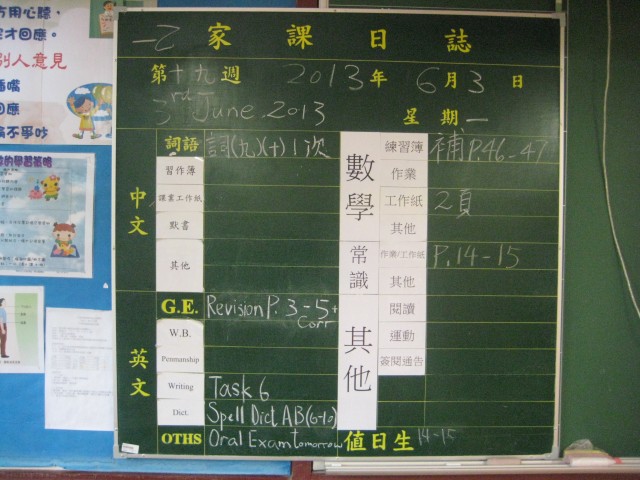 方用心聽，
才回應。
別人意見
插嘴
回應
不爭吵
一乙 家課日誌
第十九週 2013年 6月3日
3rd June, 2013 星期一
中文
詞語 詞(九)(十)1次
習作簿
課業工作紙
默書
其他
英文
G.E. Revision P. 3-5 + Corr
W.B.
Penmanship
Writing Task 6
Dict. Spell Dict AB(6-10)
OTHS Oral Exam tomorrow
數學
練習簿 補P.46-47
作業
工作紙 2頁
其他
常識
作業/工作紙 P.14-15
其他
其他
閱讀
運動
簽閱通告
值日生 14-15